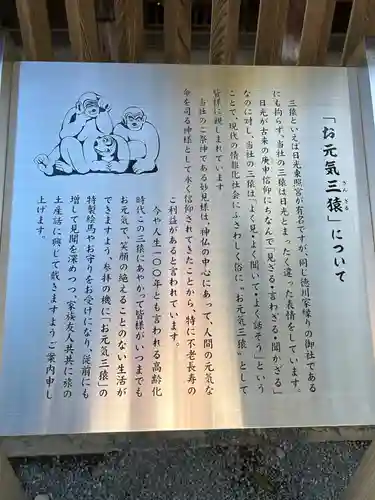 「お元気三猿」について
さん ざる
三猿といえば日光東照宮が有名ですが、同じ徳川家縁りの御社である
にも拘らず、当社の三猿は日光とまったく違った表情をしています。
日光が古来の庚申信仰にちなんで「見ざる・言わざる・聞かざる」
なのに対し、当社の三猿は「よく見・よく聞いて・よく話そう」という
ことで、現代の情報化社会にふさわしく俗に〝お元気三猿〟として
皆様に親しまれています
当社のご祭神である妙見様は、神仏の中心にあって、人間の元気な
命を司る神様として永く信仰されてきたことから、特に不老長寿の
ご利益があると言われています。
今や人生一〇〇年とも言われる高齢化
時代この三猿にあやかって皆様がいつまでも
お元気で、笑顔の絶えることのない生活が
できますよう、参拝の機に「お元気三猿」の
特製絵馬やお守りをお受けになり、従前にも
増して見聞を深めつつ、家族友人共共に旅の
土産話に興じて戴きますようご案内申し
上げます。